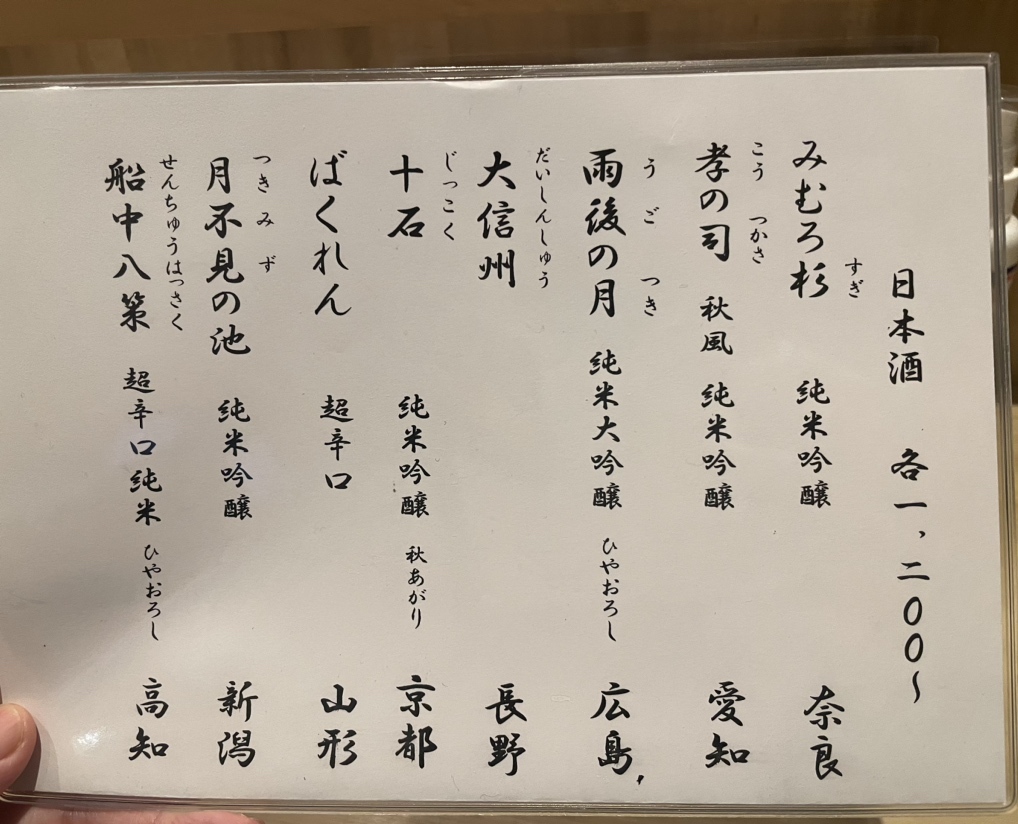 日本酒 各一、二00〜
みむろ杉 純米吟醸 奈良
すぎ
孝の司 秋風 純米吟醸 愛知
こう つかさ
雨後の月 純米大吟醸 ひやおろし 広島
うご つき
大信州 長野
だいしんしゅう
十石 純米吟醸 秋あがり 京都
じっこく
ばくれん 超辛口 山形
月不見の池 純米吟醸 新潟
つきみず
船中八策 超辛口純米 ひやおろし 高知
せんちゅうはっさく